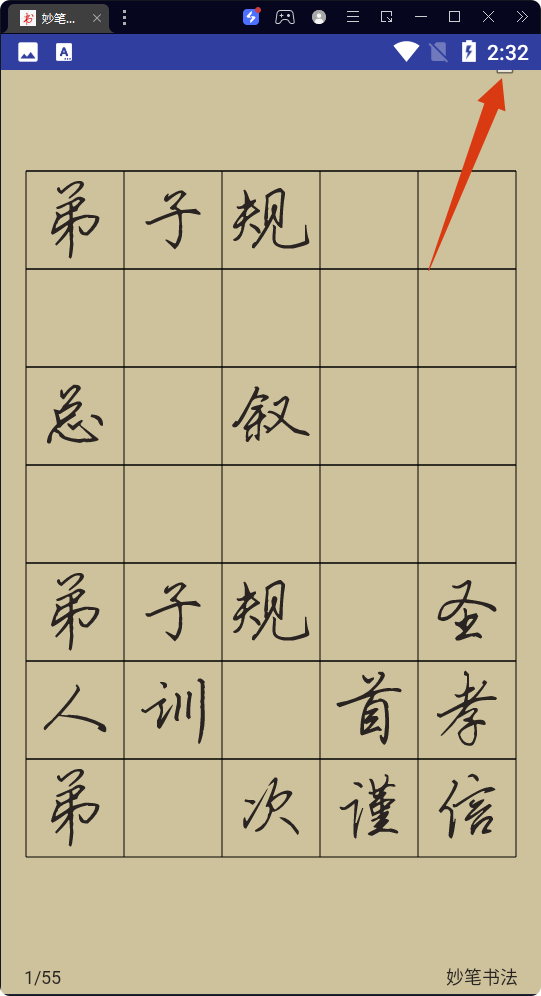 妙笔...
2:32
弟子规
总 叙
弟子规 圣
人训 首孝
弟 次谨信
1/55
妙笔书法